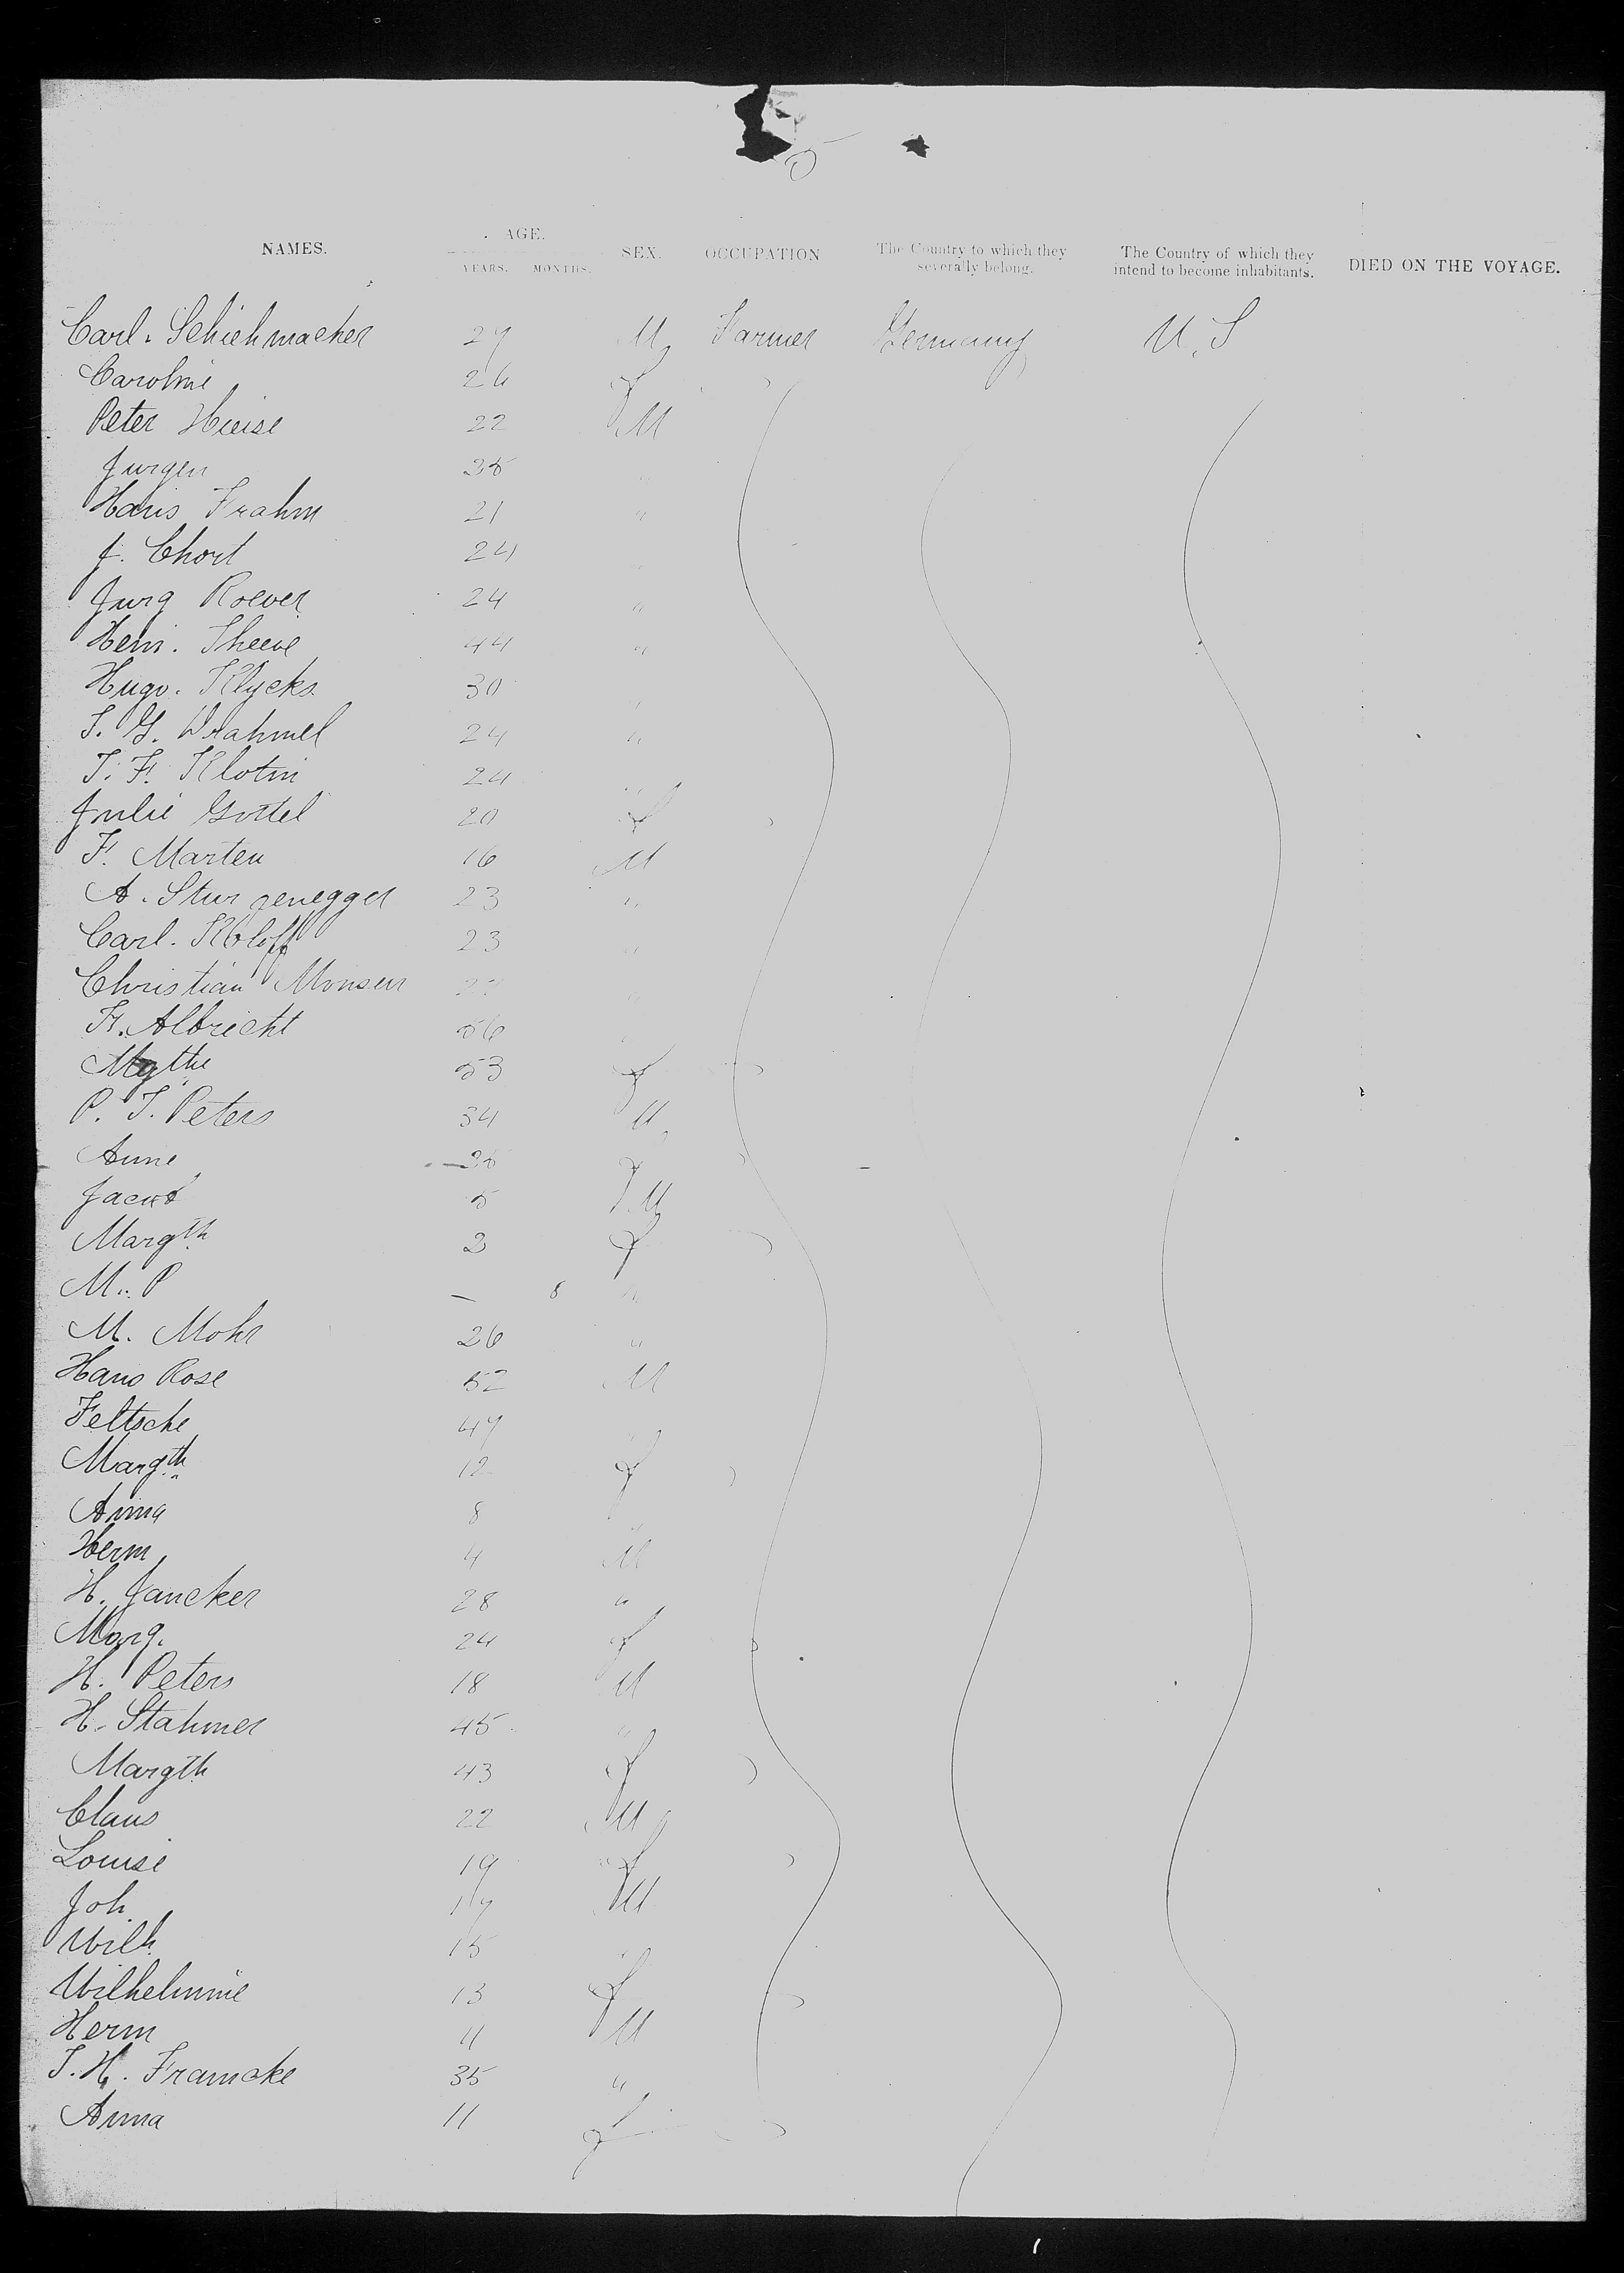 5
NAMES. AGE. YEARS. MONTHS. SEX. OCCUPATION The Country to which they severally belong. The Country of which they intend to become inhabitants. DIED ON THE VOYAGE.
Carl. Schiehmacher 27 M Farmer Germany U.S
Caroline 26 f
Peter Hieise 22 M
Jurgen 35 "
Hans Frahm 21 "
J. Chort 24 "
Jurg Roever 24 "
Hein. Sheeve 44 "
Hugo. Klycks 30 "
J. G. Drahmel 24 "
J. F. Klotin 24 "
Julie Gottel 20 f
F. Marten 16 M
A. Sturzenegger 23 "
Carl. Koloff 23 "
Christian Monsen "
Fr. Albricht 56 "
53 f
P. J. Peters 34 M
Anne 26 f
Jacob 5 M
Margth 2 f
M. P — 8 "
M. Mohr 26 "
Hans Rose 52 M
Feltsche 47 "
Margth 12 f
Anna 8 "
Herm 4 M
H. Jancker 28 "
Marg. 24 f
H. Peters 18 M
H. Stahmer 45 "
Margth 43 f
Claus 22 M
Louise 19 f
Joh 17 M
Wilh 15 "
Wilhelmine 13 f
Herm 11 M
J. H. Framcke 35 "
Anna 11 f